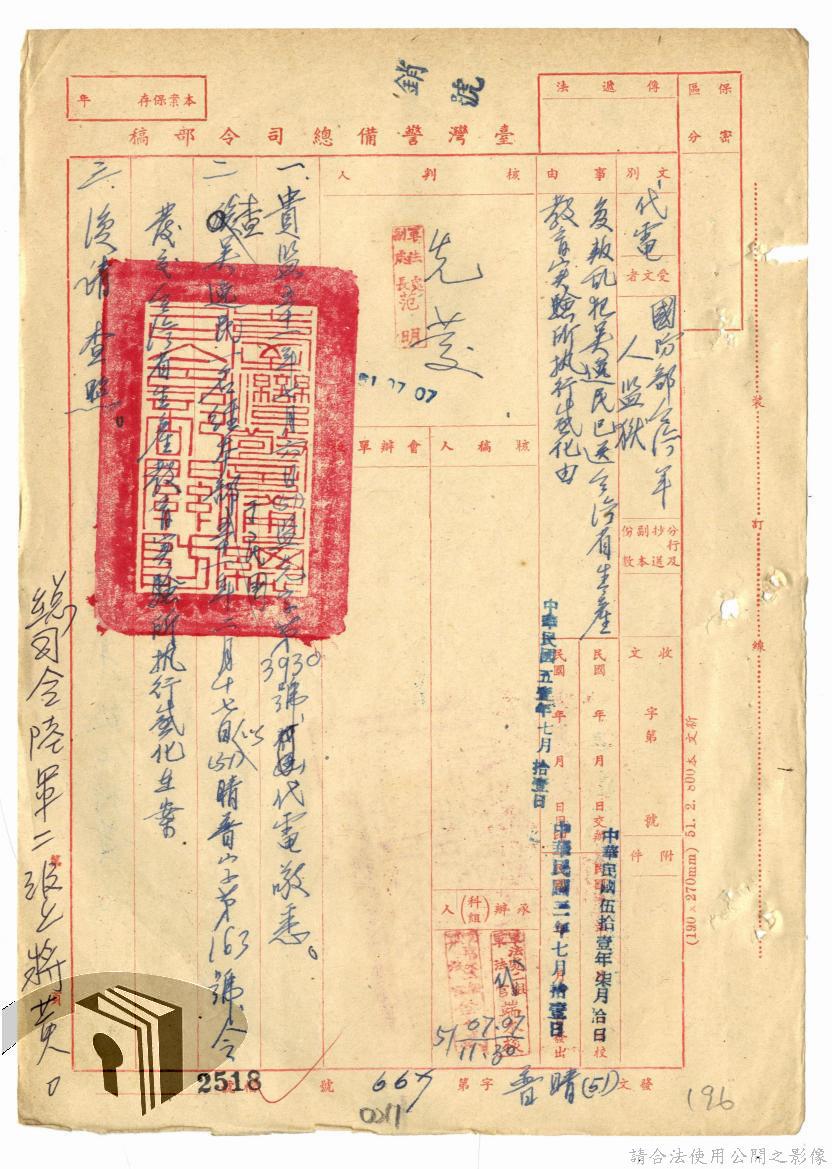 銷號
保密區分
傳遞法
本案保存 年
臺灣警備總司令部稿
文別
代電
受文者
國防部台灣軍人監獄
事由
復叛乱犯吳逸民已送台湾省生產
教育实驗所执行感化由
核判人
軍法處副處長范明
先發
51 07 07
分行及抄送副本份數
收文 字第 號
附件
核稿人
會辦單位
承辦(科組)人
51.07.07
11.30
民國 年 月 日交辦
中華民國伍拾壹年柒月拾日校
中華民國五壹年七月拾壹日
一、貴監五十一年七月六日(51)監先字第3930號代電敬悉。
二、查吳逸民一名經本部於民國五十一年二月十七日以(51)晴普字第163號令
發交台湾省生產教育实驗所执行感化在案
三、復請查照。
總司令陸軍二級上將黃○
發文(51)晴普字第 號
2518
0211
196
裝訂線
(190×270mm) 51. 2. 800本 文新
請合法使用公開之影像